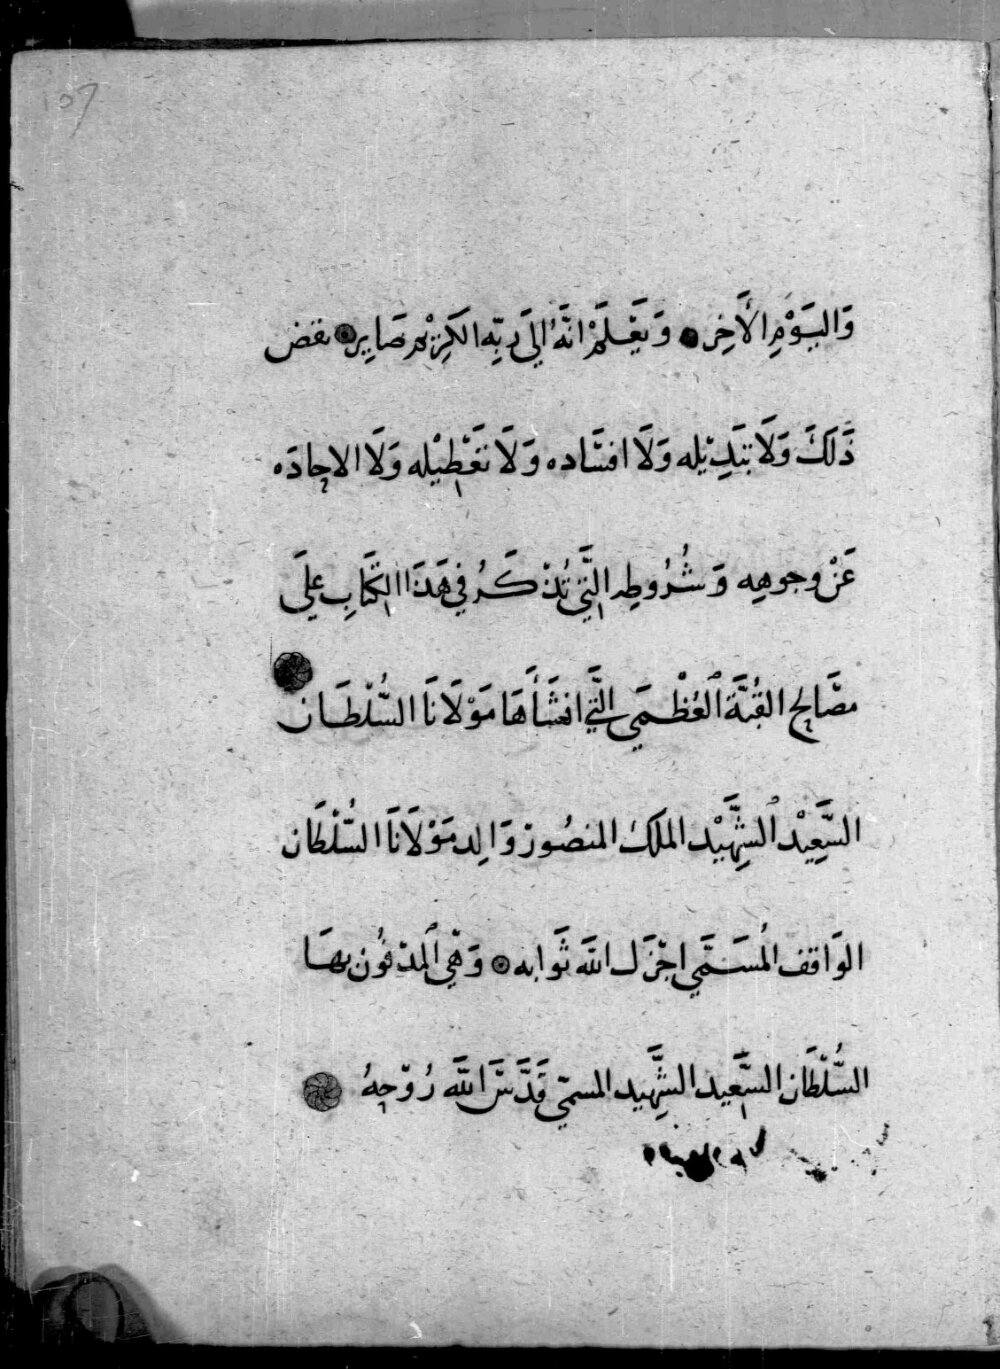 107
وَاليَوْمِ الأَخِر وَيَعْلَمْ انَّهُ الىَ رَبِّهِ الكَرِيْم صَايِر نقض
ذَلَكَ وَلَا تبَدِيْله وَلَا افسَاده وَلَا تَعْطِيْله وَلَا الاحادَه
عَنْ وجوهِهِ وَشُرُوطِهِ التَّي تُذكَرُ في هَذَا الكتَابِ علَى
مصَالِح القُبَّة العُظْمَي التَّي انشَأَهَا مَوْلَانَا السُّلْطَان
السَّعِيْد الشَّهِيْد الملك المنصُور وَالِد مَوْلَانَا السُّلْطَان
الوَاقف المُسَمَّي اجْزَل اللَّه ثَوَابه وَهْيَ المدْفُون بهَا
السُّلْطَان السَّعِيد الشَّهِيد المسمّي قَدَّسَ اللَّه رُوْحِهُ